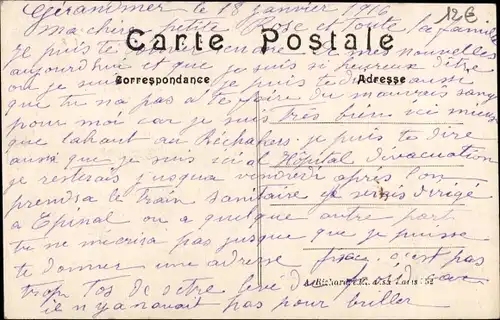 Gérardmer le 18 janvier 1916
12€
Ma chère petite Rose et toute la famille
Je puis te donner de mes nouvelles
Carte Postale
aujourd'hui et que je suis si heureux d'être
Correspondance
Adresse
ou je suis je puis te dire aussi
que tu na pas a te faire du mauvais sang
pour moi car je suis très bien ici mieux
que lahaut au Réchakers. je puis te dire
aussi que je suis ici a l'Hôpital d'évacuation
je resterais jusqua vendredi après l'on
prendra le train sanitaire je serais dirigé
a Epinal ou a quelque autre part
tu ne mécrira pas jusque que je puisse
te donner une adresse fixe. c'est pas
trop tos de être levé de car
il n'y avait pas pour briller